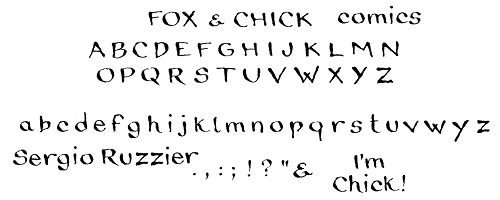 FOX & CHICK comics
A B C D E F G H I J K L M N
O P Q R S T U V W X Y Z
a b c d e f g h i j k l m n o p q r s t u v w y z
Sergio Ruzzier . , : ; ! ? " &
I'm
Chick!